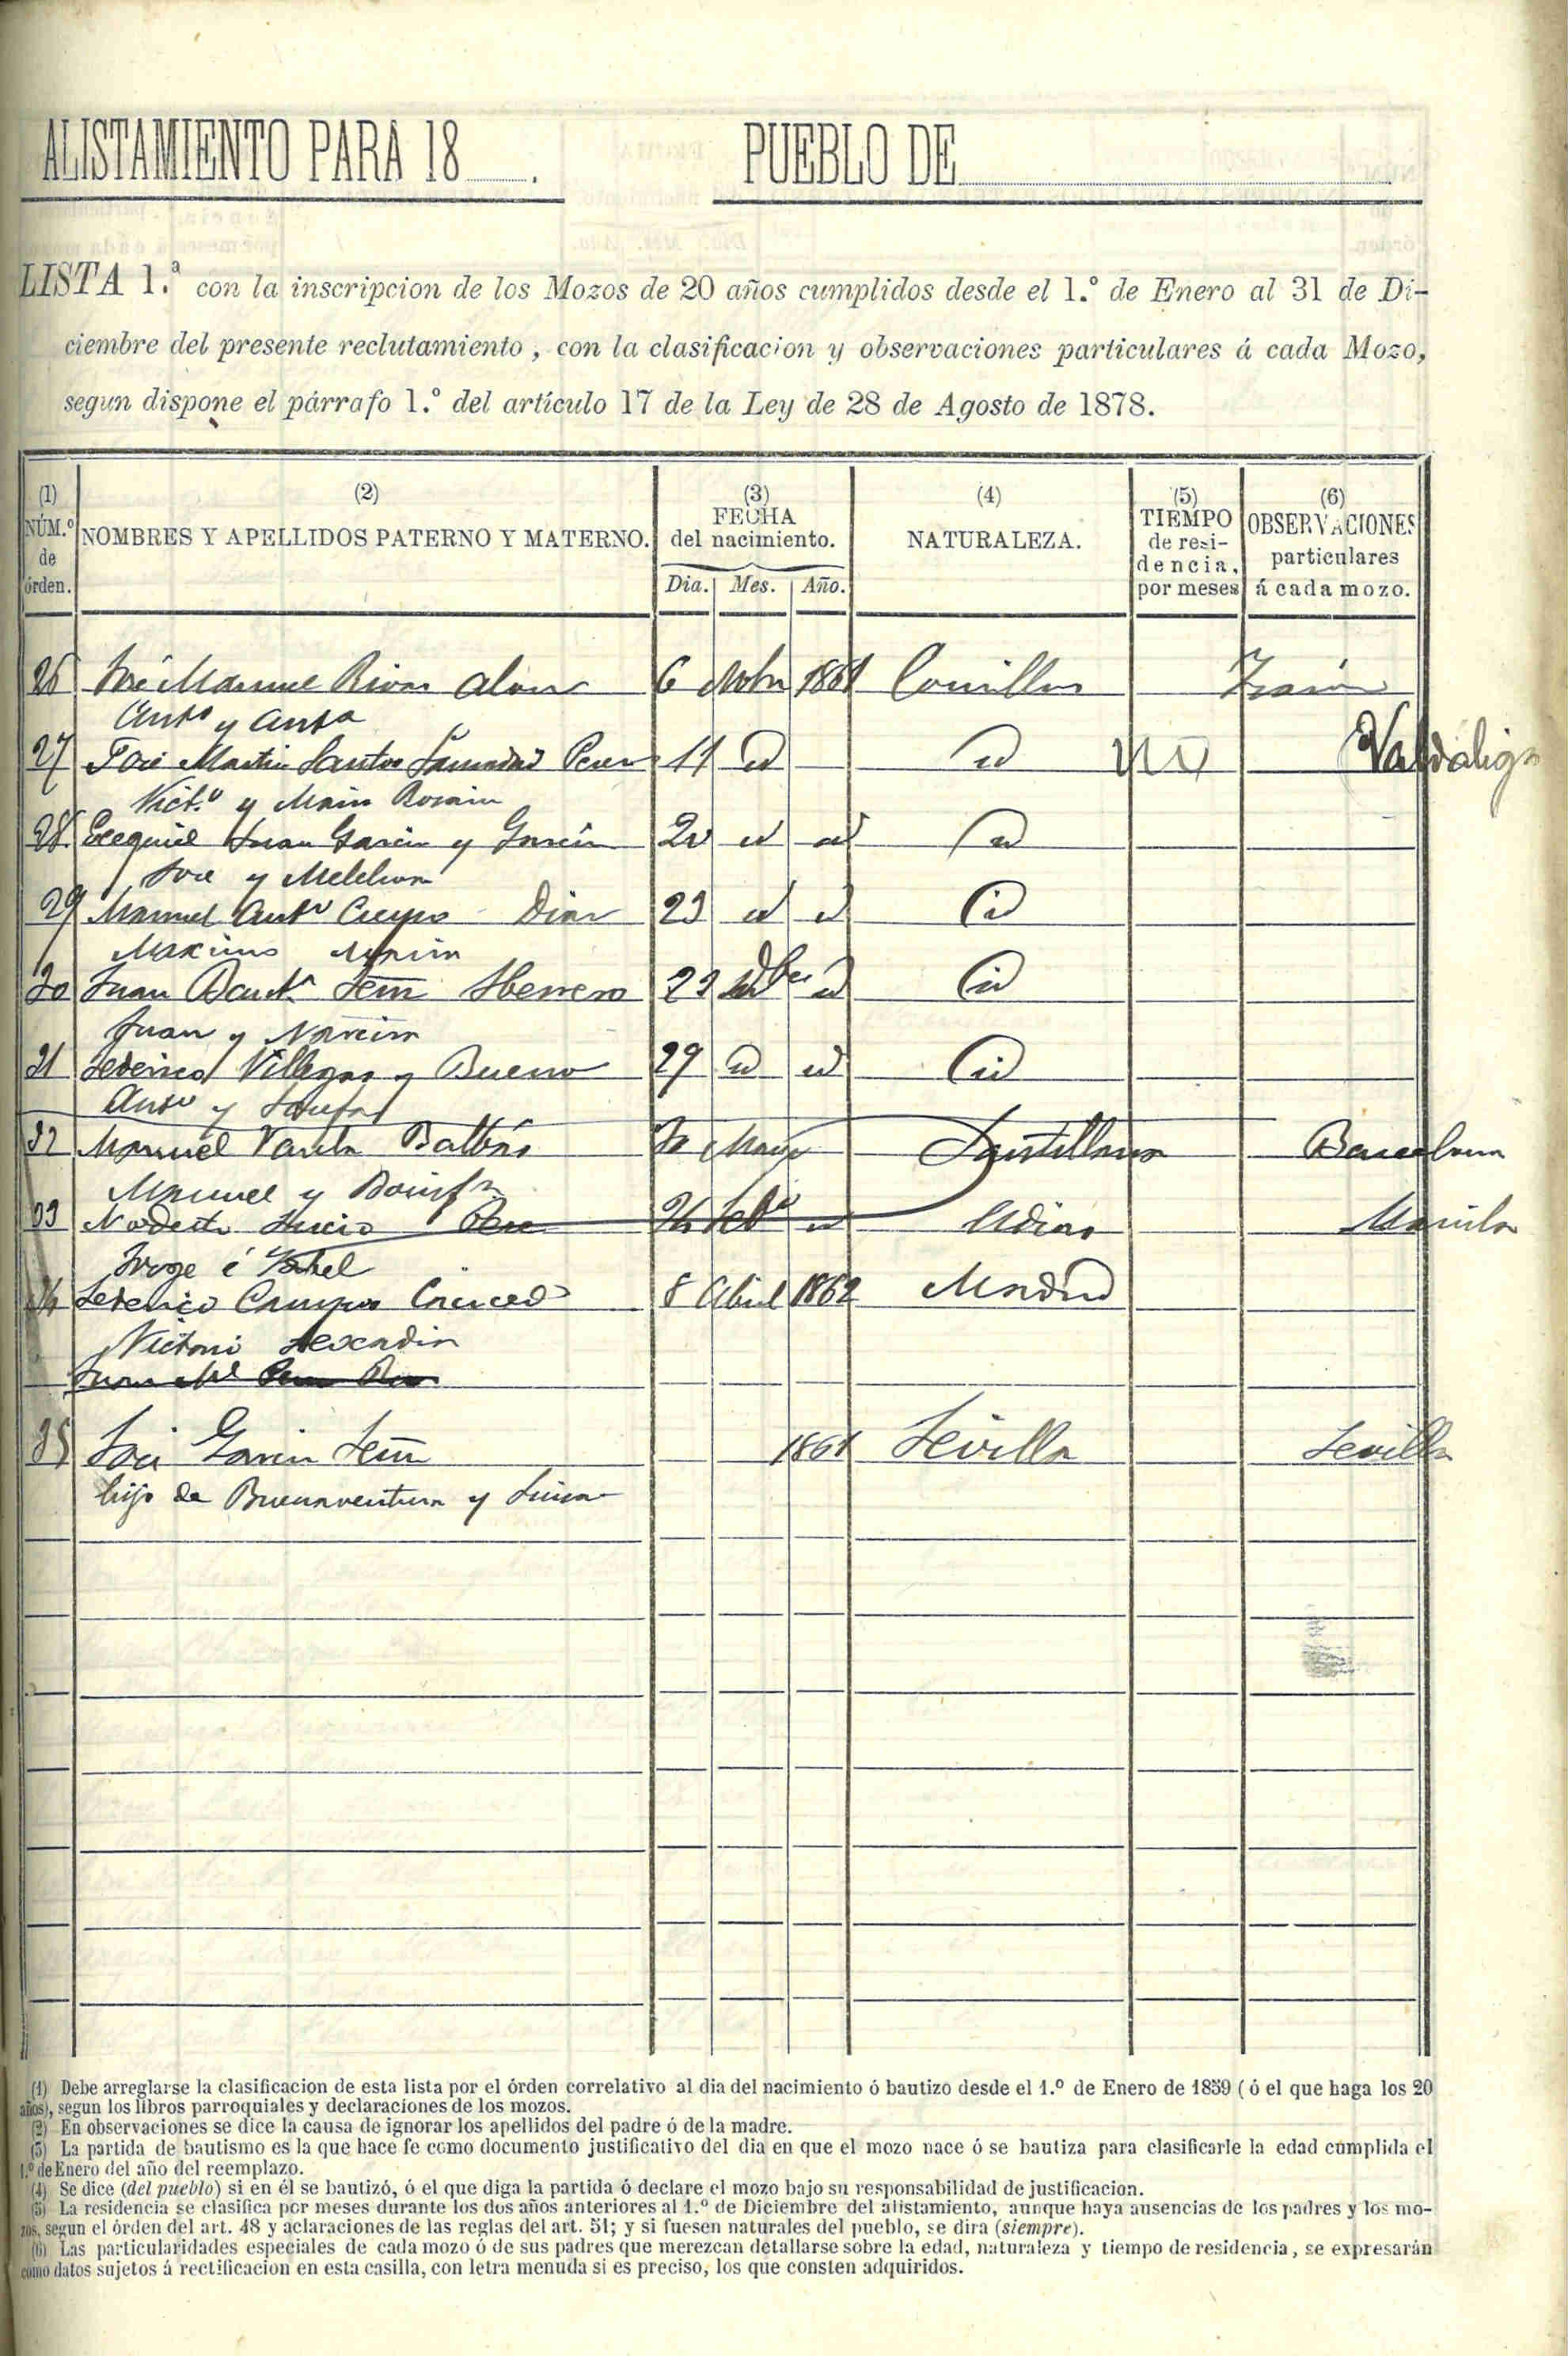 ALISTAMIENTO PARA 18 .
PUEBLO DE
LISTA 1.ª con la inscripcion de los Mozos de 20 años cumplidos desde el 1.º de Enero al 31 de Di-
ciembre del presente reclutamiento, con la clasificacion y observaciones particulares á cada Mozo,
segun dispone el párrafo 1.º del artículo 17 de la Ley de 28 de Agosto de 1878.
(1) NÚM.º de órden.
(2) NOMBRES Y APELLIDOS PATERNO Y MATERNO.
(3) FECHA del nacimiento. Dia. Mes. Año.
(4) NATURALEZA.
(5) TIEMPO de resi-dencia, por meses
(6) OBSERVACIONES particulares á cada mozo.
26 José Manuel Rivas Alonso 6 1861
Antº y Antª
27 José Martin Santos Perez 11 id id no Valdáliga
Victº y Maria
28 Ezequiel Juan Garcia y Garcia id id id
José y Melchora
29 Manuel Antº Crespo Diaz 23 id id id
Maximo Maria
30 Juan Bautª Herrero 23 id id
Juan y Narcisa
31 Federico Villegas y Bueno 29 id id id
Antº y
32 Manuel Varela Balbás Mayo Santillana Barcelona
Manuel y
33 Modesto Lucio Perez id Udias Manila
Jorge é Isabel
34 Federico Campos 8 Abril 1862 Madrid
Juan Ml Perez
35 José Garcia 1861 Sevilla Sevilla
hijo de Buenaventura y Luisa
(1) Debe arreglarse la clasificacion de esta lista por el órden correlativo al dia del nacimiento ó bautizo desde el 1.º de Enero de 1859 (ó el que haga los 20
años), segun los libros parroquiales y declaraciones de los mozos.
(2) En observaciones se dice la causa de ignorar los apellidos del padre ó de la madre.
(3) La partida de bautismo es la que hace fe como documento justificativo del dia en que el mozo nace ó se bautiza para clasificarle la edad cumplida el
1.º de Enero del año del reemplazo.
(4) Se dice (del pueblo) si en él se bautizó, ó el que diga la partida ó declare el mozo bajo su responsabilidad de justificacion.
(5) La residencia se clasifica por meses durante los dos años anteriores al 1.º de Diciembre del alistamiento, aunque haya ausencias de los padres y los mo-
zos, segun el órden del art. 48 y aclaraciones de las reglas del art. 51; y si fuesen naturales del pueblo, se dira (siempre).
(6) Las particularidades especiales de cada mozo ó de sus padres que merezcan detallarse sobre la edad, naturaleza y tiempo de residencia, se expresarán
como datos sujetos á rectificacion en esta casilla, con letra menuda si es preciso, los que consten adquiridos.